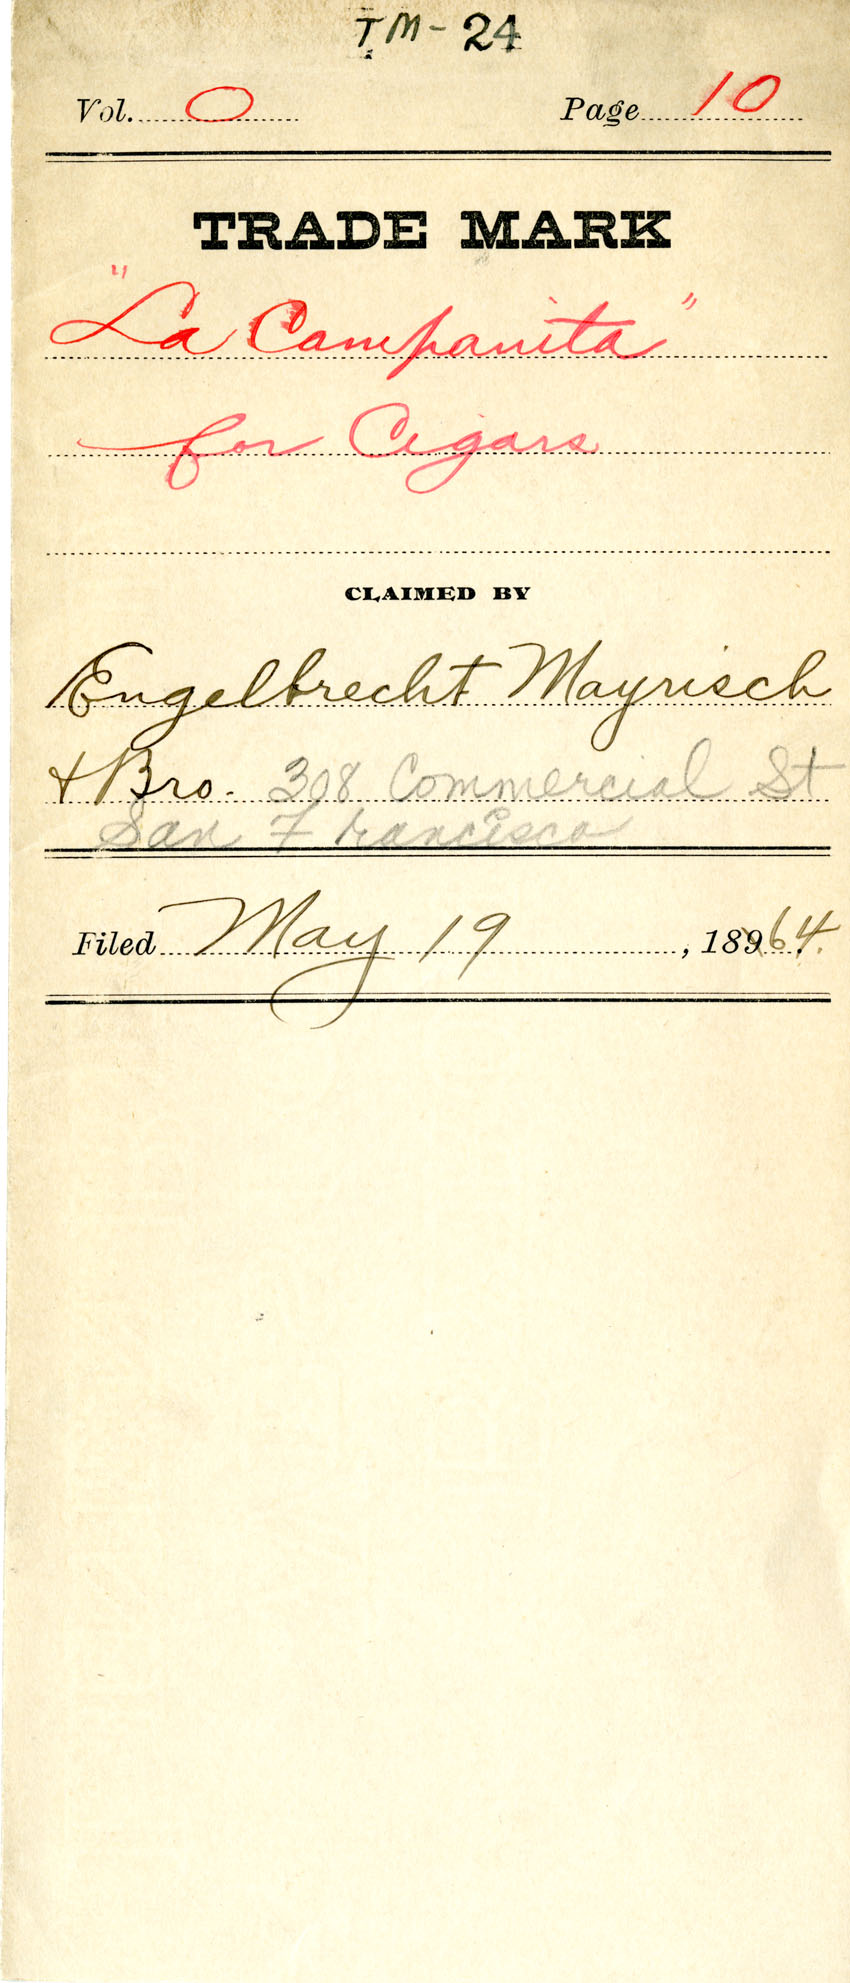 TM-24
Vol. 0 Page 10
TRADE MARK
"La Campanita"
for Cigars
CLAIMED BY
Engelbrecht Mayrisch
& Bro. 308 Commercial St
San Francisco
Filed May 19, 18964.